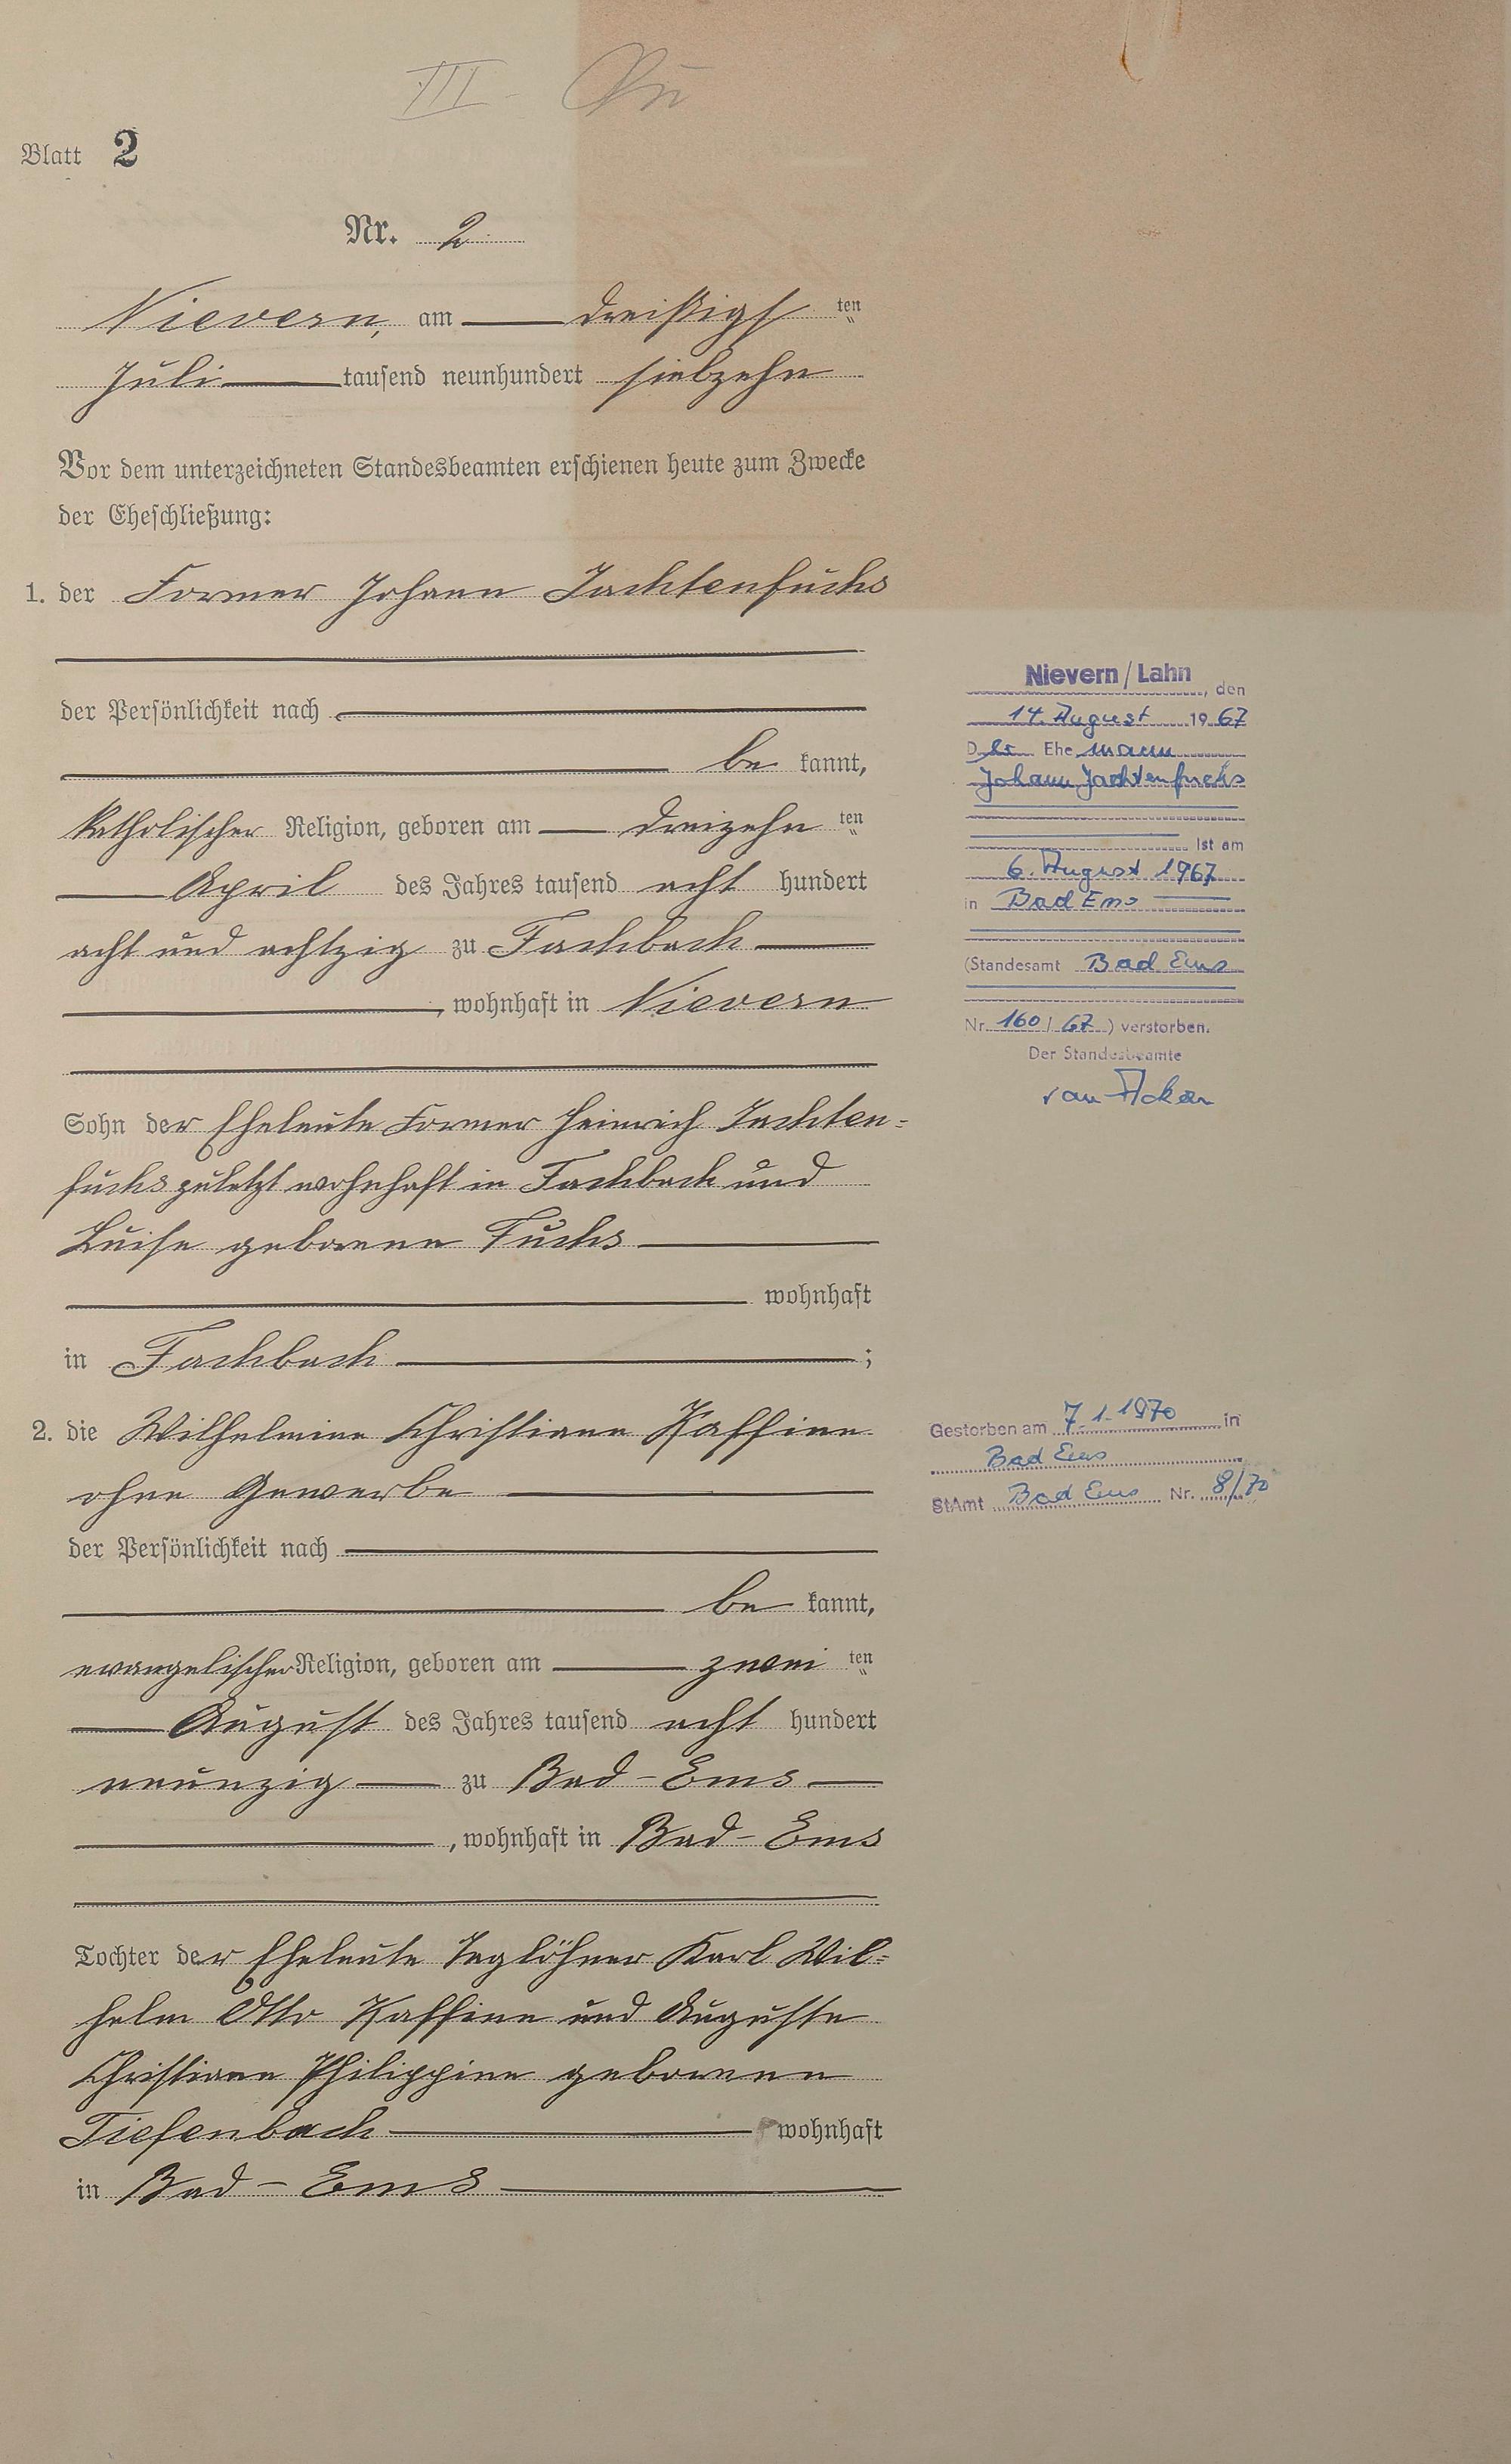 III
Blatt 2
Nr. 2
Nievern, am dreißigsten
Juli tausend neunhundert siebzehn
Vor dem unterzeichneten Standesbeamten erschienen heute zum Zwecke
der Eheschließung:
1. der Former Johann Jachtenfuchs
der Persönlichkeit nach
be kannt,
katholischer Religion, geboren am dreizehn ten
April des Jahres tausend acht hundert
acht und achtzig zu Fachbach
, wohnhaft in Nievern
Sohn der Eheleute Former Heinrich Jachten-
fuchs zuletzt wohnhaft in Fachbach und
Luise geborene Fuchs
wohnhaft
in Fachbach ;
2. die Wilhelmine Christiane Kaffine
ohne Gewerbe
der Persönlichkeit nach
be kannt,
evangelischer Religion, geboren am zwei ten
August des Jahres tausend acht hundert
neunzig zu Bad-Ems
, wohnhaft in Bad-Ems
Tochter der Eheleute Taglöhner Karl Wil-
helm Otto Kaffine und Auguste
Christiane Philippine geborene
Tiefenbach wohnhaft
in Bad-Ems
Nievern/Lahn, den
14. August 1967
Der Ehemann
Johann Jachtenfuchs
ist am
6. August 1967
in Bad Ems
(Standesamt Bad Ems
Nr. 160/67) verstorben.
Der Standesbeamte
van Acken
Gestorben am 7.1.1970 in
Bad Ems
StAmt Bad Ems Nr. 8/70